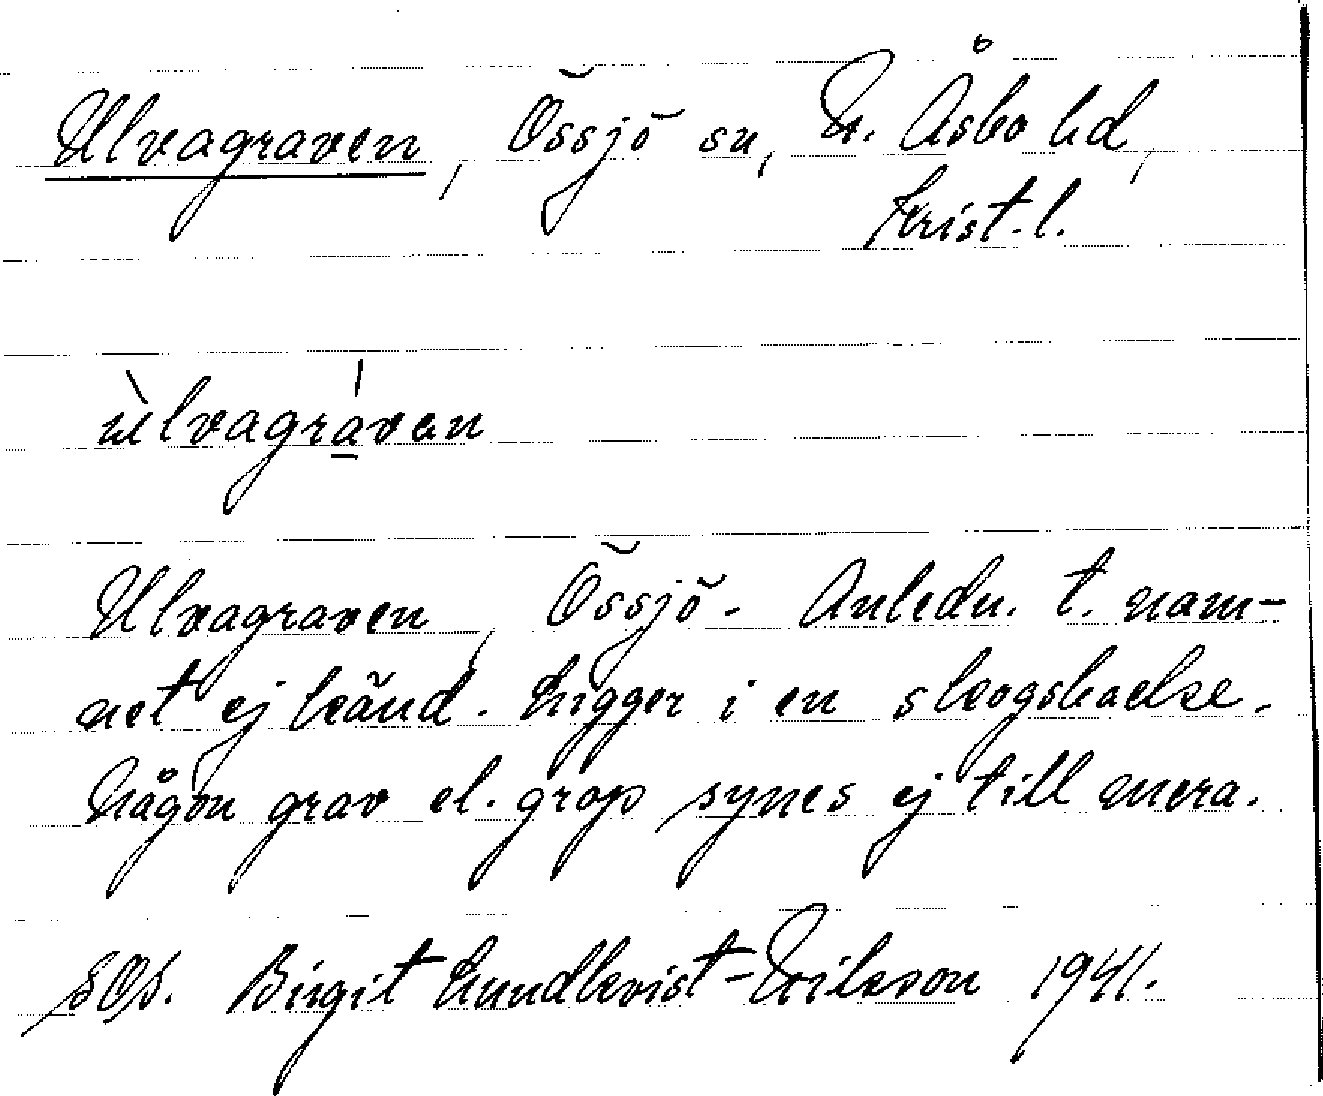 Ulvagraven, Össjö sn, N. Åsbo hd,
Krist. l.
ùlvagráven
Ulvagraven, Össjö. Anledn. t. nam-
net ej känd. Ligger i en skogsbacke.
Någon grav el. grop synes ej till mera.
SOS. Birgit Lundkvist-Nilsson 1941.